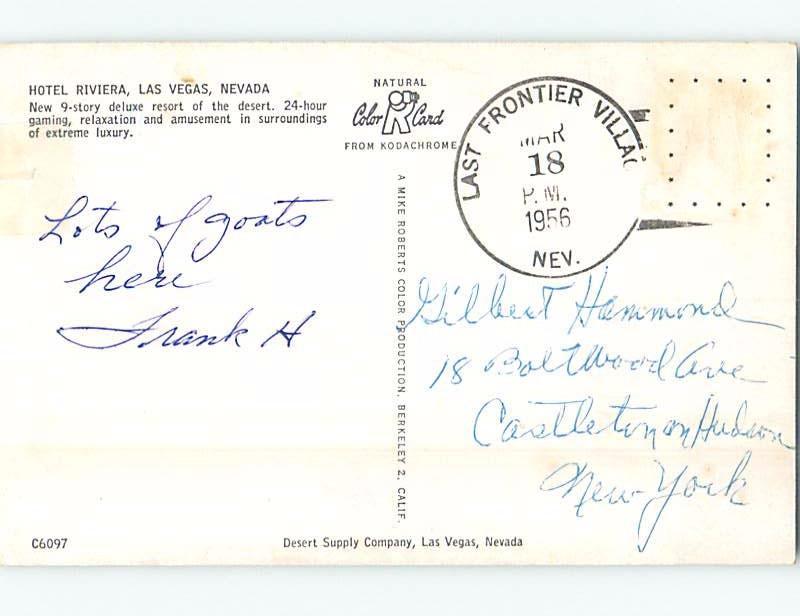 HOTEL RIVIERA, LAS VEGAS, NEVADA
New 9-story deluxe resort of the desert. 24-hour
gaming, relaxation and amusement in surroundings
of extreme luxury.
NATURAL
Color Card
FROM KODACHROME
LAST FRONTIER VILLAG
MAR
18
P.M.
1956
NEV.
Lots of goats
here
Frank H
A MIKE ROBERTS COLOR PRODUCTION. BERKELEY 2, CALIF.
Gilbert Hammond
18 Boltwood Ave
Castleton on Hudson
New York
C6097
Desert Supply Company, Las Vegas, Nevada